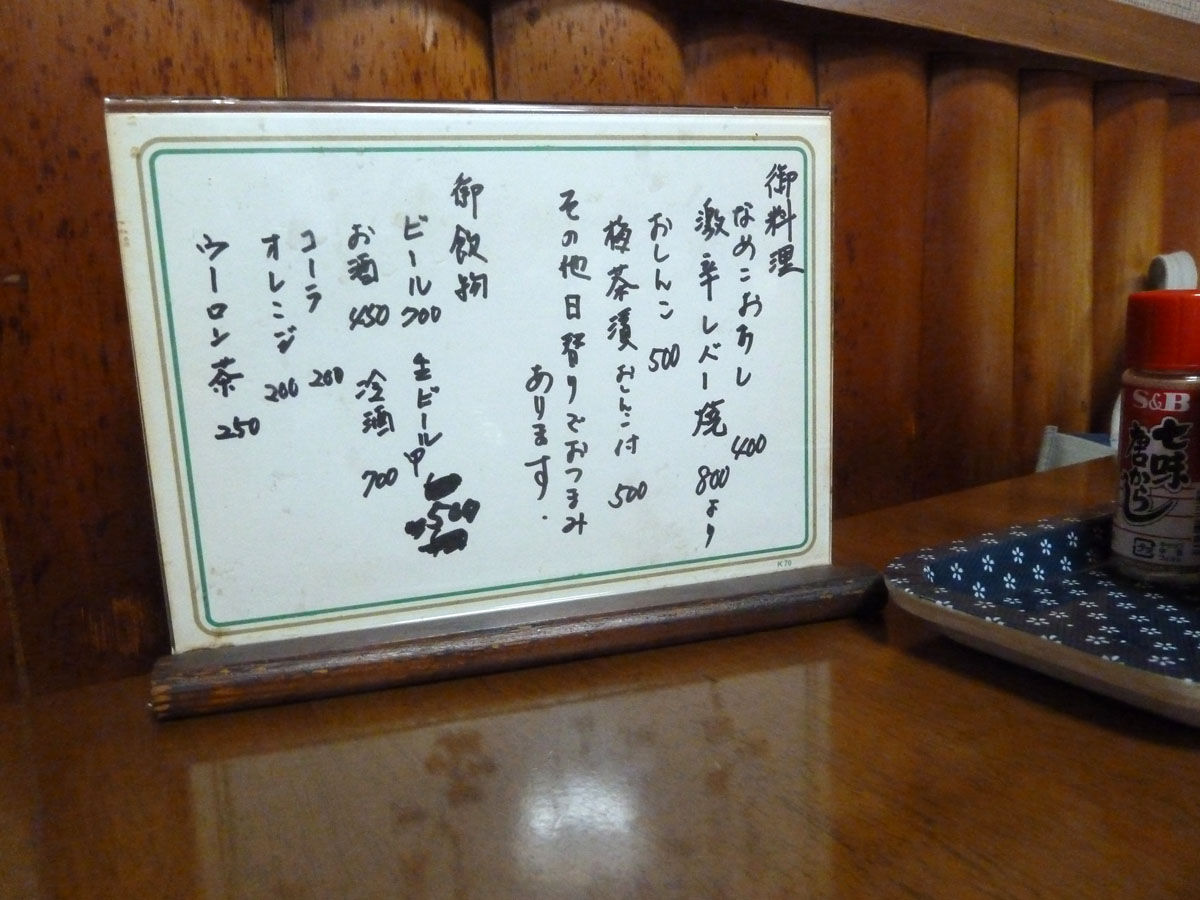 御料理
なめこおろし 400
激辛レバー焼 800より
おしんこ 500
梅茶漬おしんこ付 500
その他日替りでおつまみ
あります.
御飲物
ビール 700 生ビール中 500
お酒 450 冷酒 700
コーラ 200
オレンジ 200
ウーロン茶 250
K70
S&B
七味
唐からし